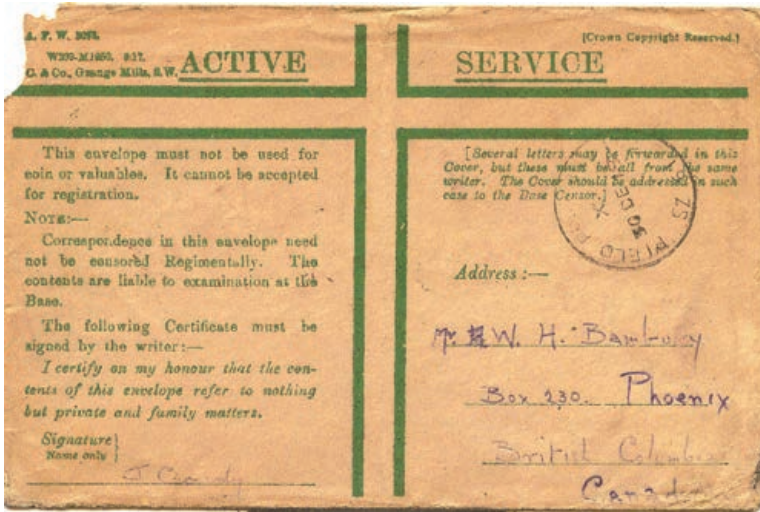 A. F. W. 3078.
[Crown Copyright Reserved.]
& Co., Grange Mills, S.W.
ACTIVE SERVICE
This envelope must not be used for
coin or valuables. It cannot be accepted
for registration.
NOTE:—
Correspondence in this envelope need
not be censored Regimentally. The
contents are liable to examination at the
Base.
The following Certificate must be
signed by the writer:—
I certify on my honour that the con-
tents of this envelope refer to nothing
but private and family matters.
Signature }
Name only }
J.
[Several letters may be forwarded in this
Cover, but these must be all from the same
writer. The Cover should be addressed in such
case to the Base Censor.]
FIELD
30 DE
Address :—
Mr. W. H. Bambury
Box 230. Phoenix
British Columbia
Canada